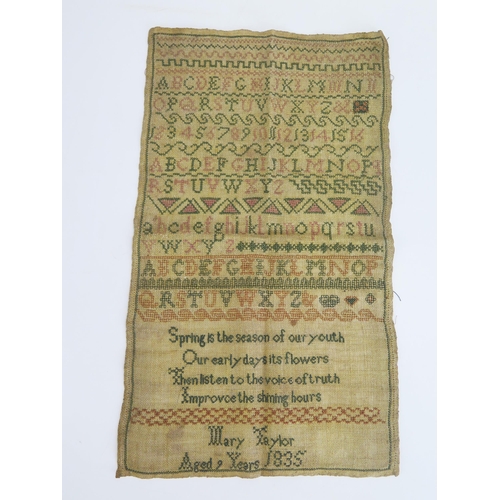 ABCDEFGHIJKLMNN
OPQRSTUVWXYZ&
12345678910111213141516
ABCDEFGHIJKLMNOPQ
RSTUVWXYZ
abcdefghiklmnopqrstu
VWXYZ
ABCDEFGHIJKLMNOP
QRSTUVWXYZ&
Spring is the season of our youth
Our early days its flowers
Then listen to the voice of truth
Improvce the shining hours
Mary Taylor
Aged 9 Years 1835